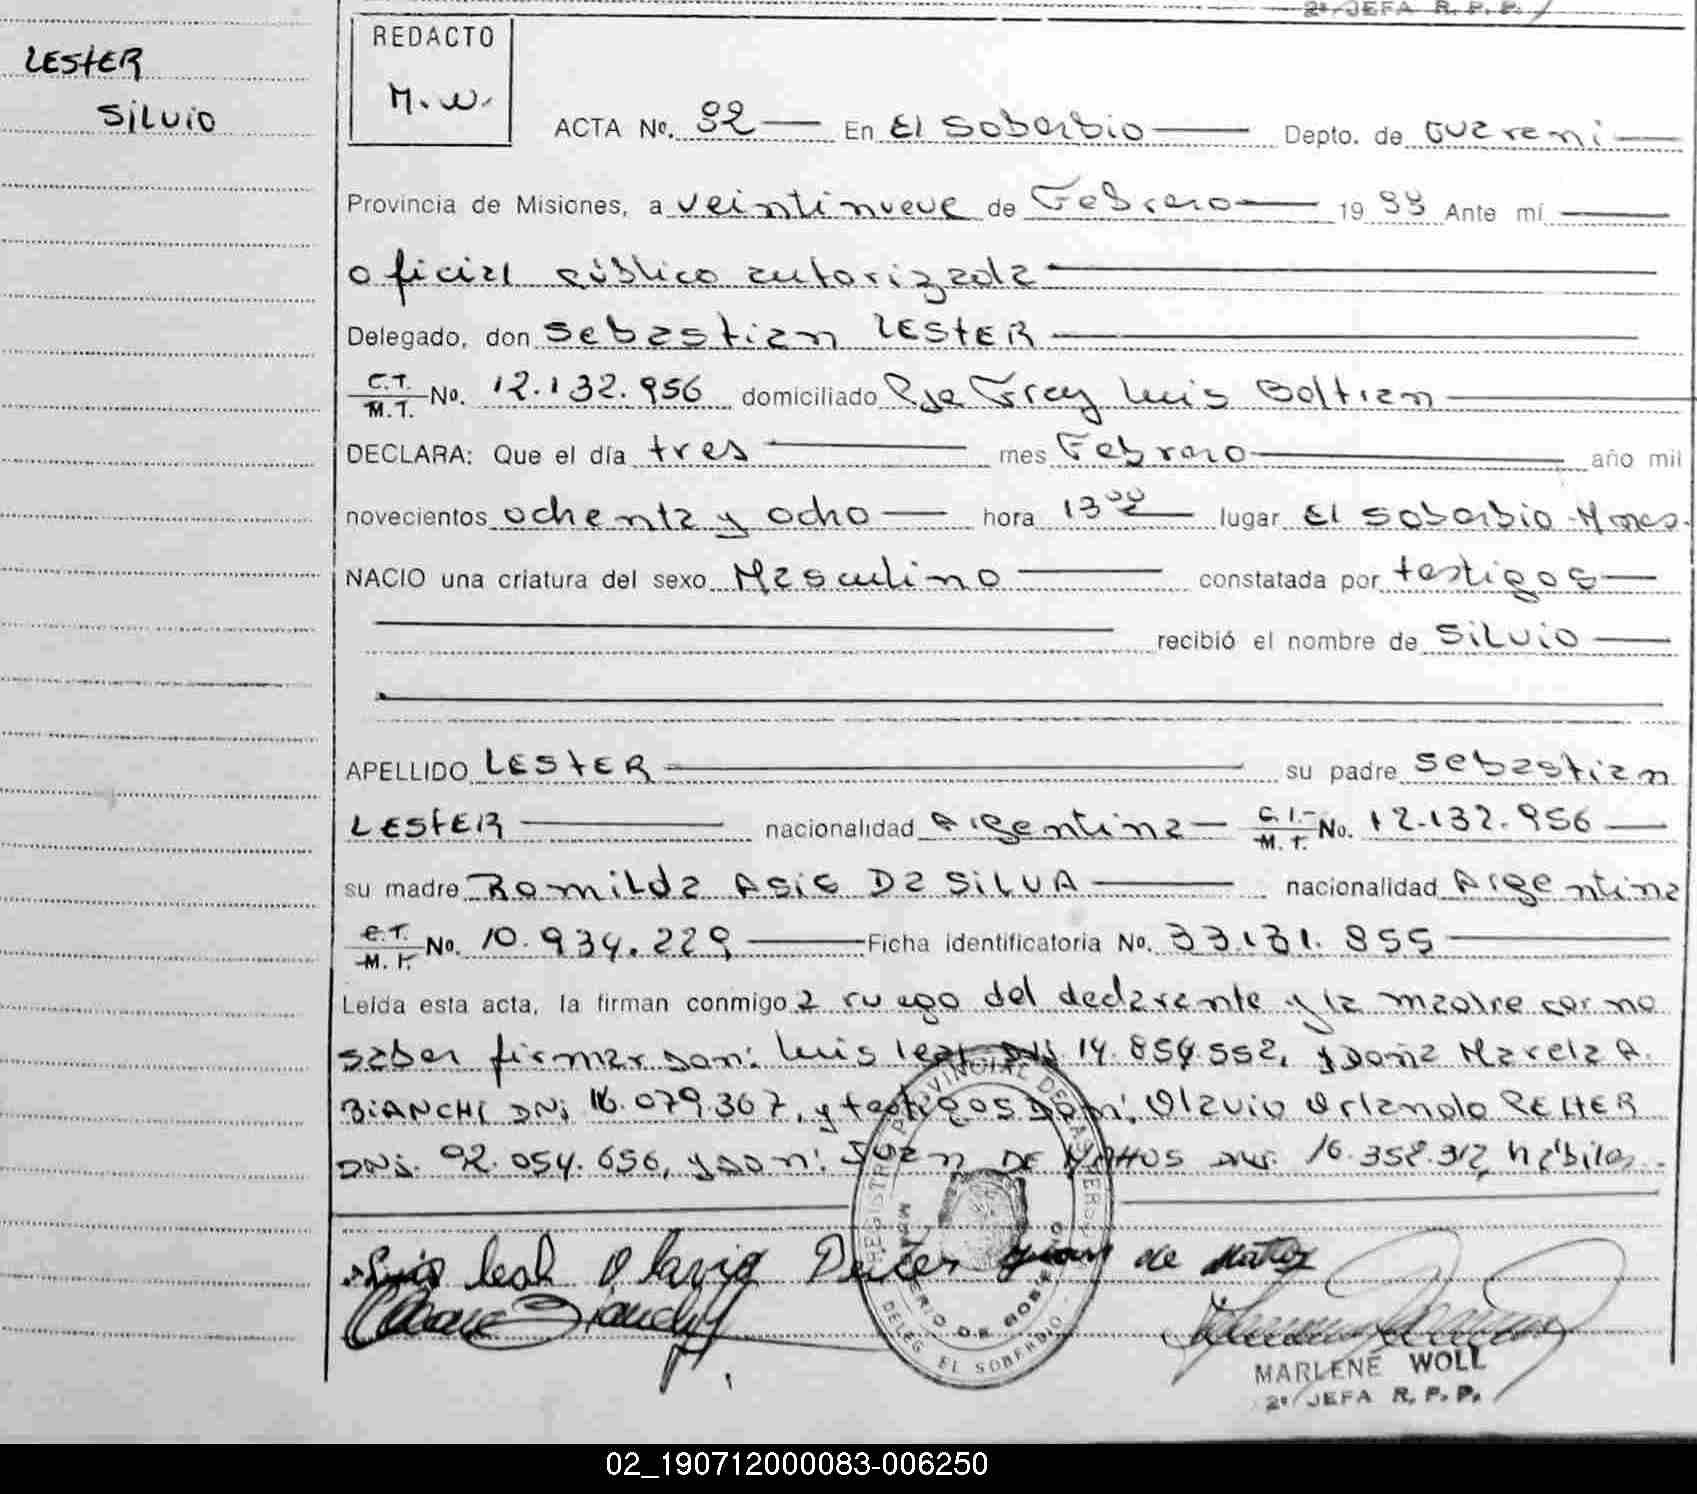 2ª JEFA R. P. P.
LESTER
SILVIO
REDACTO
M.W.
ACTA No. 92 En El Soberbio Depto. de Guarani
Provincia de Misiones, a veintinueve de Febrero 1988 Ante mí
oficial público autorizada
Delegado, don Sebastian LESTER
C.T. M.T. No. 12.132.956 domiciliado Pje Fray Luis Beltran
DECLARA: Que el día tres mes Febrero año mil
novecientos ochenta y ocho hora 13⁰⁰ lugar El Soberbio-Mnes.
NACIO una criatura del sexo Masculino constatada por testigos
recibió el nombre de SILVIO
APELLIDO LESTER su padre Sebastian
LESTER nacionalidad Argentina C.I. M.T. No. 12.132.956
su madre Romilda ASIS Da SILVA nacionalidad Argentina
C.T. M.I. No. 10.934.229 Ficha identificatoria No. 33.131.855
Leída esta acta, la firman conmigo a ruego del declarante y la madre por no
saber firmar don: Luis Leal DNI 14.854.552, y doña Marcela A.
BIANCHI DNI 16.079.367, y testigos don: Olavio Orlando PEITER
DNI. 92.054.656, y don: Juan DE MATTOS DNI. 16.352.312 hábiles.
Luis Leal Olavio Peiter Juan de Mattos
Bianchi
REGISTRO PROVINCIAL DE LAS PERSONAS
MINISTERIO DE GOBIERNO
DELEG. EL SOBERBIO
MARLENE WOLL
2ª JEFA R. P. P.
02_190712000083-006250